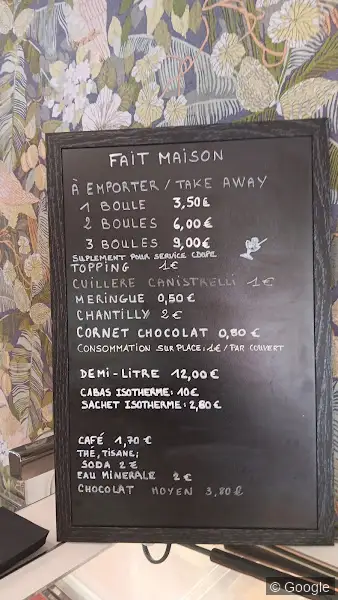 FAIT MAISON
À EMPORTER / TAKE AWAY
1 BOULE 3,50 €
2 BOULES 6,00 €
3 BOULES 9,00 €
SUPLEMENT POUR SERVICE COUPE
TOPPING 1€
CUILLERE CANISTRELLI 1€
MERINGUE 0,50 €
CHANTILLY 2 €
CORNET CHOCOLAT 0,50 €
CONSOMMATION SUR PLACE: 1€ / PAR COUVERT
DEMI-LITRE 12,00 €
CABAS ISOTHERME: 10€
SACHET ISOTHERME: 2,80 €
CAFÉ 1,70 €
THÉ, TISANE;
SODA 2 €
EAU MINERALE 2 €
CHOCOLAT MOYEN 3,80 €
© Google